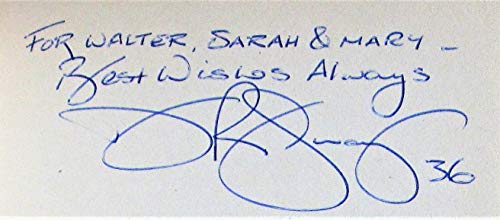 FOR WALTER, SARAH & MARY –
Best Wishes Always
36